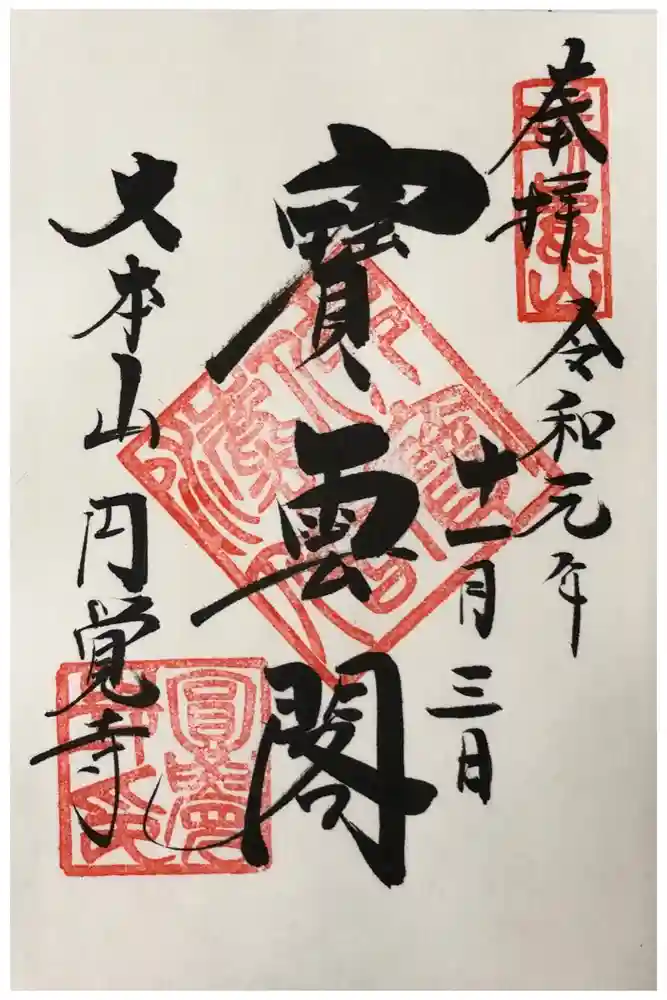 奉拝
令和元年
十一月三日
寳雲閣
大本山円覚寺